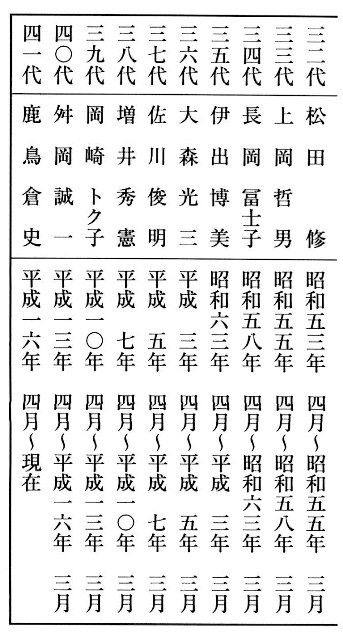 三二代 松田 修 昭和五三年 四月～昭和五五年 三月
三三代 上岡哲男 昭和五五年 四月～昭和五八年 三月
三四代 長岡冨士子 昭和五八年 四月～昭和六三年 三月
三五代 伊出博美 昭和六三年 四月～平成 三年 三月
三六代 大森光三 平成 三年 四月～平成 五年 三月
三七代 佐川俊明 平成 五年 四月～平成 七年 三月
三八代 増井秀憲 平成 七年 四月～平成一〇年 三月
三九代 岡崎トク子 平成一〇年 四月～平成一三年 三月
四〇代 舛岡誠一 平成一三年 四月～平成一六年 三月
四一代 鹿鳥倉史 平成一六年 四月～現在